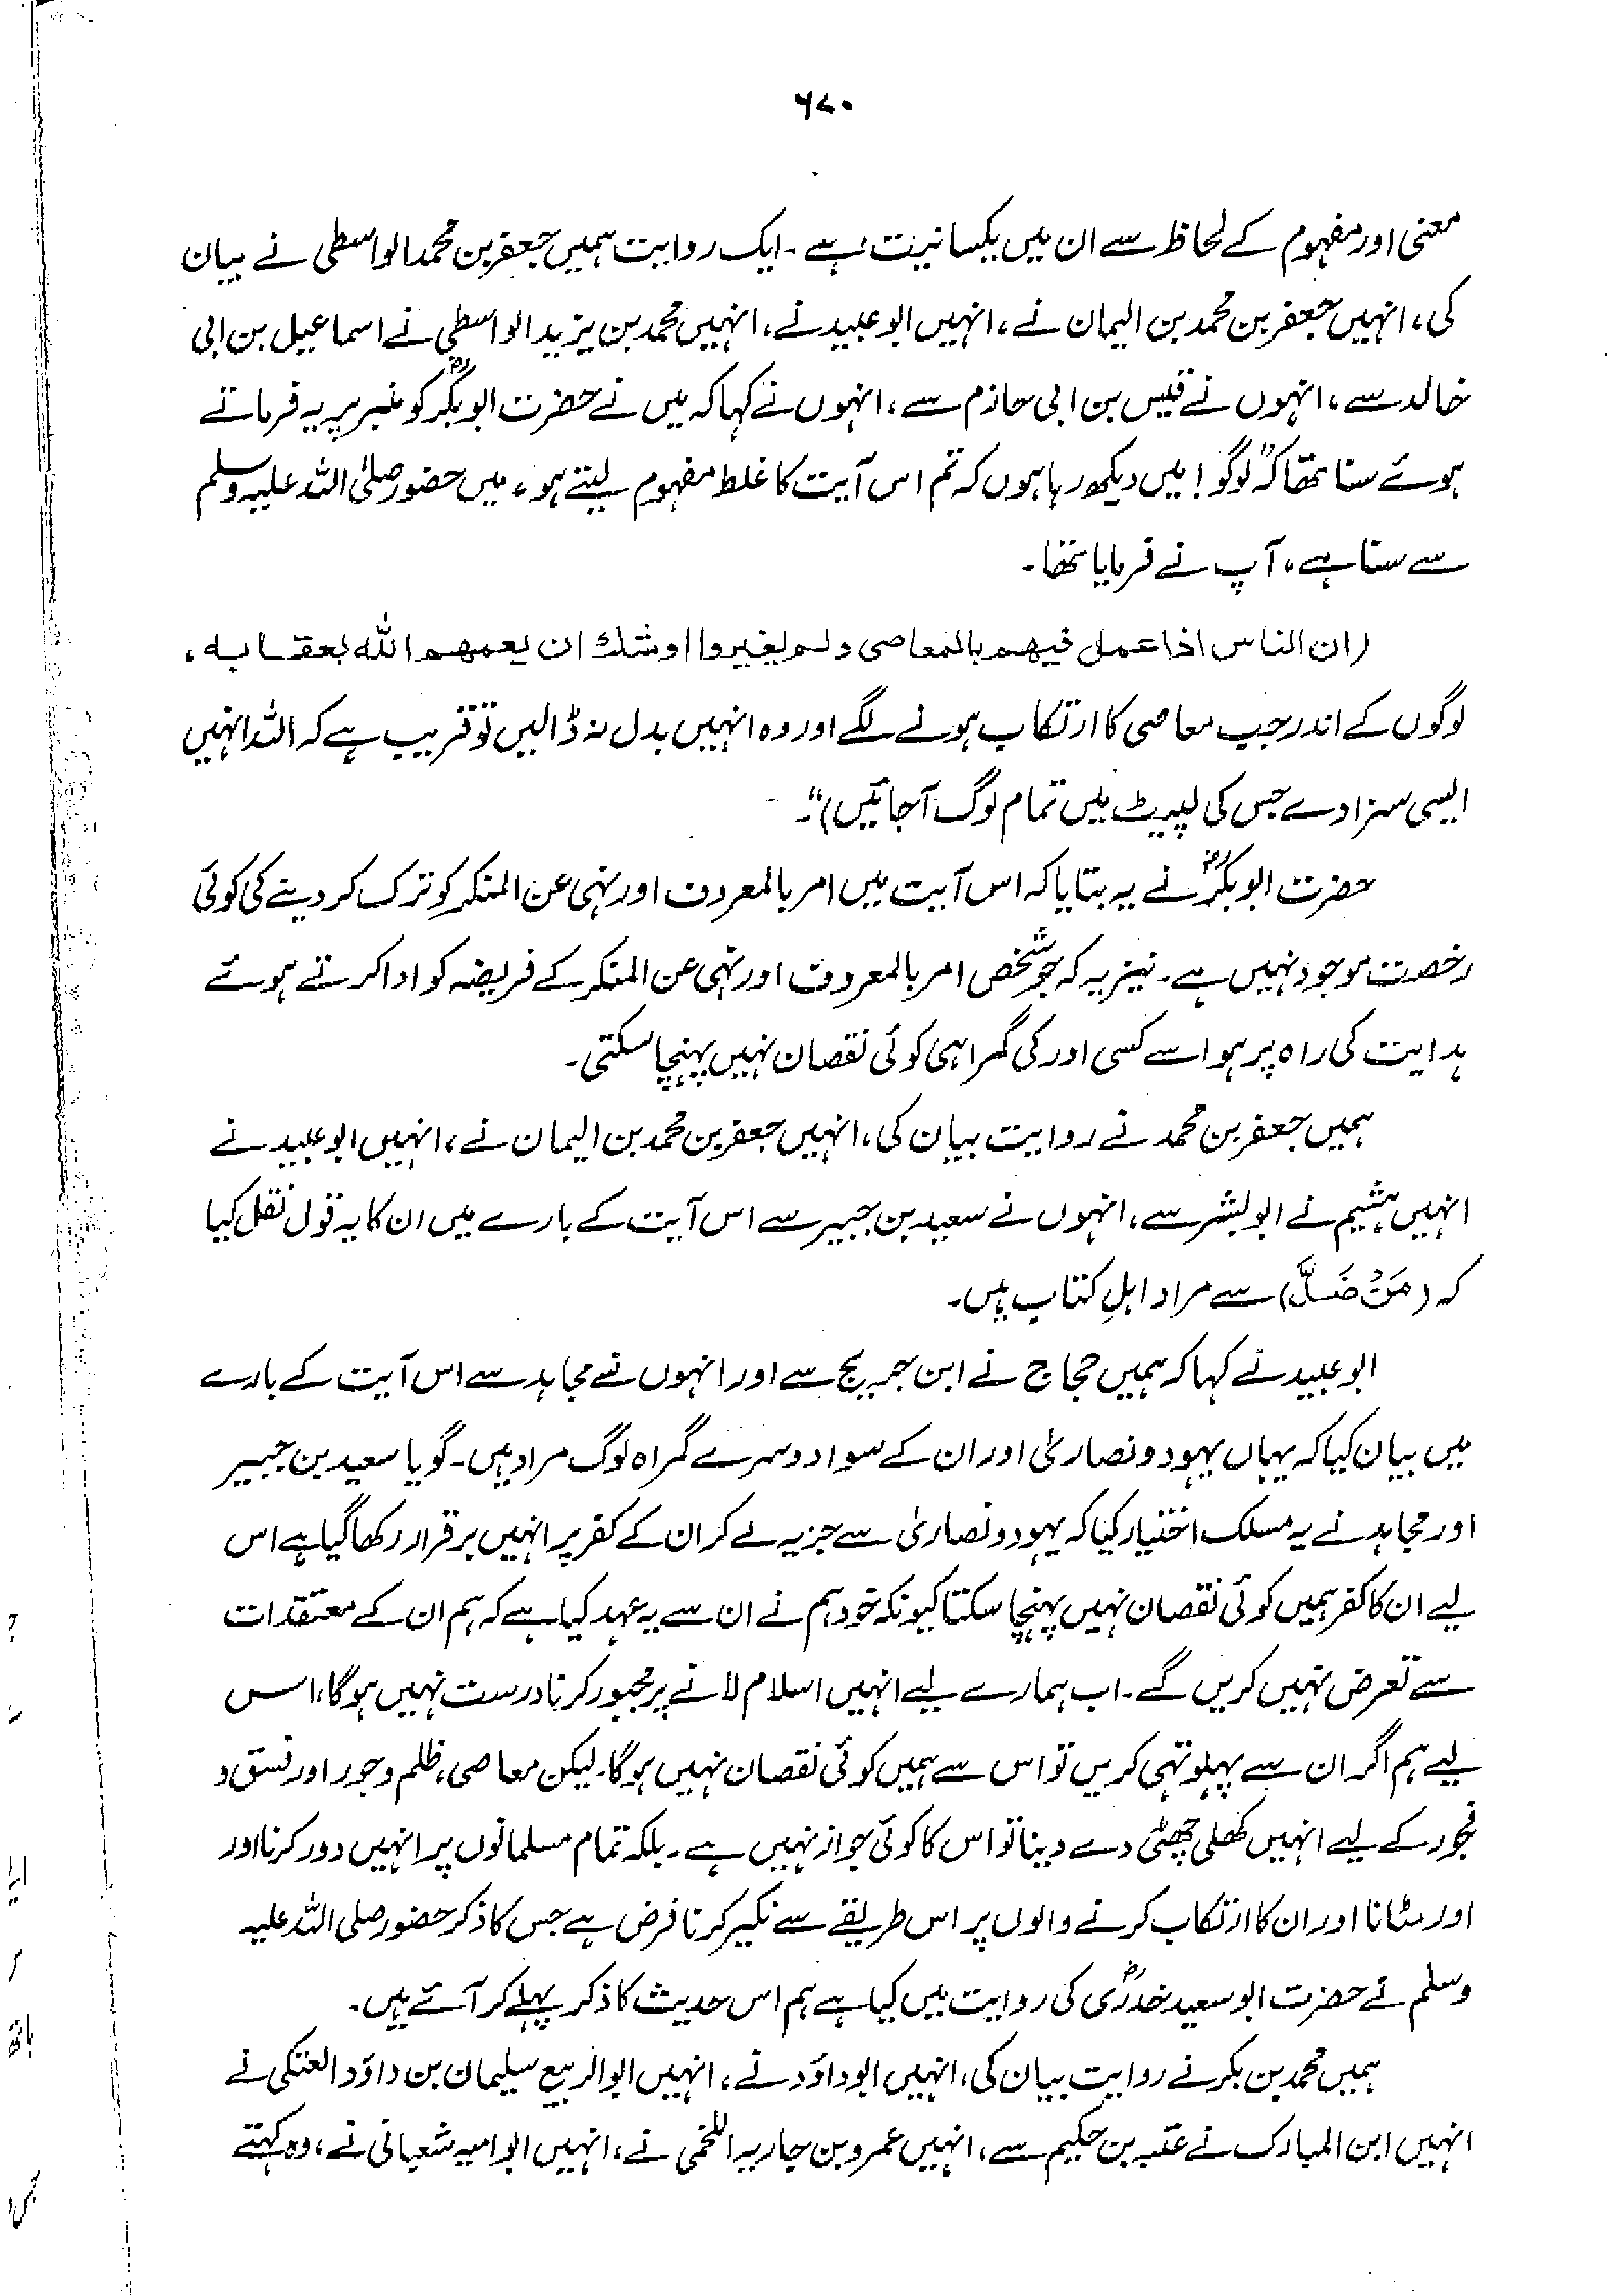 ۶۷۰
معنی اور مفہوم کے لحاظ سے ان میں یکسانیت ہے۔ ایک روایت ہمیں جعفر بن محمد الواسطی نے بیان
کی، انہیں جعفر بن محمد بن الیمان نے، انہیں ابو عبید نے، انہیں محمد بن یزید الواسطی نے اسماعیل بن ابی
خالد سے، انہوں نے قیس بن ابی حازم سے، انہوں نے کہا کہ میں نے حضرت ابوبکرؓ کو منبر پر یہ فرماتے
ہوئے سنا تھا کہ "لوگو! میں دیکھ رہا ہوں کہ تم اس آیت کا غلط مفہوم لیتے ہو، میں حضور صلی اللہ علیہ وسلم
سے سنا ہے، آپ نے فرمایا تھا۔
(ان الناس اذا عمل فیهم بالمعاصی ولم یغیروا اوشك ان یعمهم الله بعقابه،
لوگوں کے اندر جب معاصی کا ارتکاب ہونے لگے اور وہ انہیں بدل نہ ڈالیں تو قریب ہے کہ اللہ انہیں
ایسی سزا دے جس کی لپیٹ میں تمام لوگ آجائیں)"۔
حضرت ابوبکرؓ نے یہ بتایا کہ اس آیت میں امر بالمعروف اور نہی عن المنکر کو ترک کر دینے کی کوئی
رخصت موجود نہیں ہے۔ نیز یہ کہ جو شخص امر بالمعروف اور نہی عن المنکر کے فریضہ کو ادا کرتے ہوئے
ہدایت کی راہ پر ہو اسے کسی اور کی گمراہی کوئی نقصان نہیں پہنچا سکتی۔
ہمیں جعفر بن محمد نے روایت بیان کی، انہیں جعفر بن محمد بن الیمان نے، انہیں ابو عبید نے
انہیں ہشیم نے ابو بشر سے، انہوں نے سعید بن جبیر سے اس آیت کے بارے میں ان کا یہ قول نقل کیا
کہ (مَنْ ضَلَّ) سے مراد اہلِ کتاب ہیں۔
ابو عبید نے کہا کہ ہمیں حجاج نے ابن جریج سے اور انہوں نے مجاہد سے اس آیت کے بارے
میں بیان کیا کہ یہاں یہود و نصاریٰ اور ان کے سوا دوسرے گمراہ لوگ مراد ہیں۔ گویا سعید بن جبیر
اور مجاہد نے یہ مسلک اختیار کیا کہ یہود و نصاریٰ سے جزیہ لے کر ان کے کفر پر انہیں برقرار رکھا گیا ہے اس
لیے ان کا کفر ہمیں کوئی نقصان نہیں پہنچا سکتا کیونکہ خود ہم نے ان سے یہ عہد کیا ہے کہ ہم ان کے معتقدات
سے تعرض نہیں کریں گے۔ اب ہمارے لیے انہیں اسلام لانے پر مجبور کرنا درست نہیں ہوگا، اس
لیے ہم اگر ان سے پہلو تہی کریں تو اس سے ہمیں کوئی نقصان نہیں ہوگا۔ لیکن معاصی، ظلم و جور اور فسق و
فجور کے لیے انہیں کھلی چھٹی دے دینا تو اس کا کوئی جواز نہیں ہے۔ بلکہ تمام مسلمانوں پر انہیں دور کرنا اور
اور مٹانا اور ان کا ارتکاب کرنے والوں پر اس طریقے سے نکیر کرنا فرض ہے جس کا ذکر حضور صلی اللہ علیہ
وسلم نے حضرت ابو سعید خدریؓ کی روایت میں کیا ہے ہم اس حدیث کا ذکر پہلے کر آئے ہیں۔
ہمیں محمد بن بکر نے روایت بیان کی، انہیں ابو داؤد نے، انہیں ابو الربیع سلیمان بن داؤد العتکی نے
انہیں ابن المبارک نے عتبہ بن حکیم سے، انہیں عمرو بن جاریہ اللخمی نے، انہیں ابو امیہ شعبانی نے، وہ کہتے